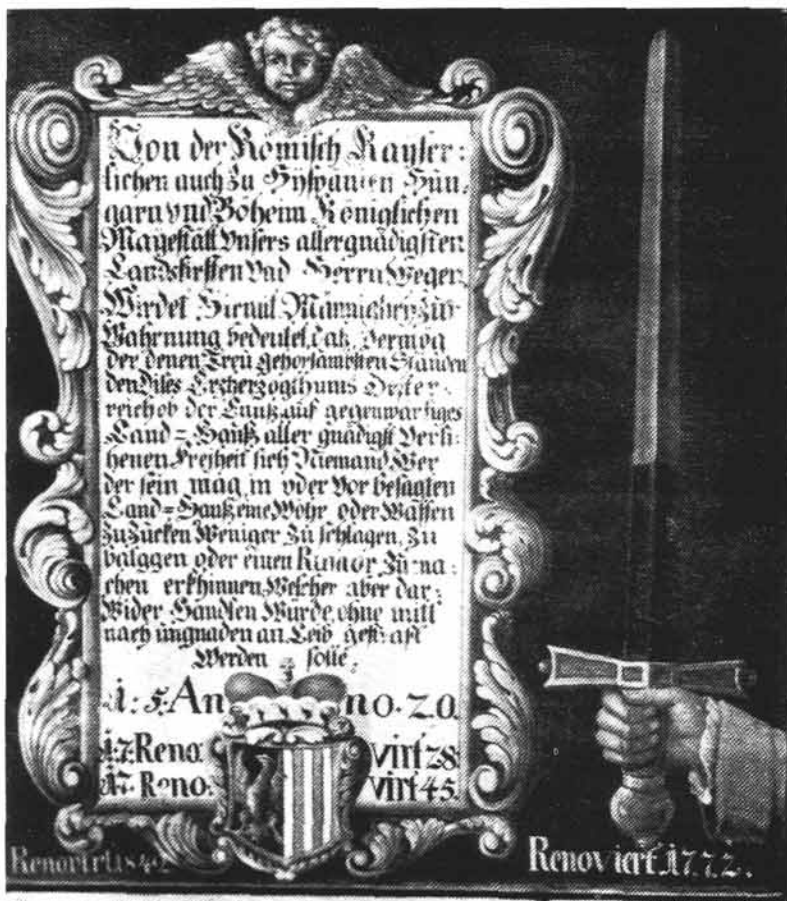 Von der Römisch Kayser:
lichen auch zu Hyspanien Hun,
garn vnd Böheim Königlichen
Mayestätt Vnsers allergnädigsten
Landsfirsten Vnd Herrn Wegen
Wirdet Hiemit Männichen zur
Wahrnung bedeutet, daß, Vermög
der denen Treü gehorsambsten Ständen
den dises Erzherzogthums Oester,
reich ob der Ennß auf gegenwärtiges
Land=Hauß aller gnädigst Verli:
henen Freiheit sich Niemand Wer
der sein mag, in oder Vor besagten
Land=Hauß, eine Wöhr oder Waffen
zu zücken Weniger zu schlagen, Zu
balggen oder einen Rumor Zu ma:
chen erkhinnen, Welcher aber dar,
Wider Handlen Wurde, ohne mitl
nach ungnaden an Leib gestraft
Werden solle.
1:5:An no.20.
17:Reno: virt 28
17.Reno: virt 45.
Renovirt 184
Renoviert 1772.